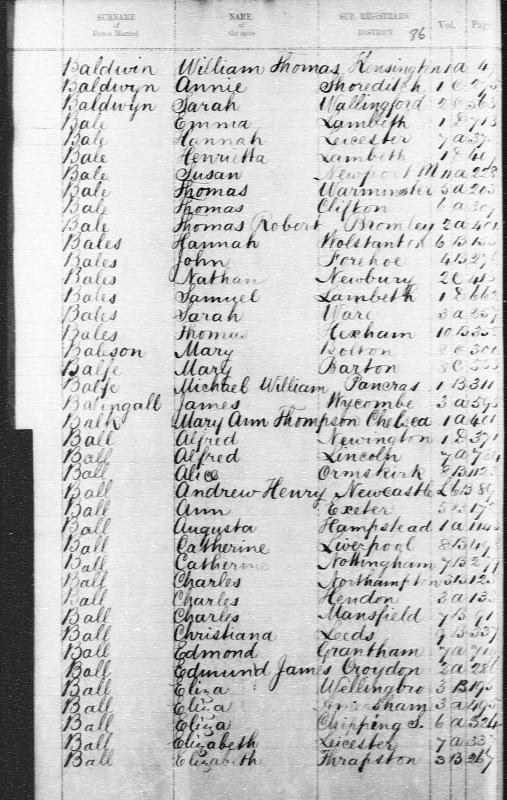 SURNAME of Person Married NAME Of the same SUP. REGISTRAR'S DISTRICT 96 Vol. Page
Baldwin William Thomas Kensington 1 a
Baldwyn Annie Shoreditch 1 C
Baldwyn Sarah Wallingford 2 C 363
Bale Emma Lambeth 1 D 713
Bale Hannah Leicester 7 a
Bale Henrietta Lambeth 1 D
Bale Susan Newport M 11 a
Bale Thomas Warminster 5 a 203
Bale Thomas Clifton 6 a
Bale Thomas Robert Bromley 2 a 401
Bales Hannah Wolstanton 6 B
Bales John Forehoe 4 B
Bales Nathan Newbury 2 C
Bales Samuel Lambeth 1 D 662
Bales Sarah Ware 3 a
Bales Thomas Hexham 10 B
Baleson Mary Bolton 8 C
Balfe Mary Barton 8 C
Balfe Michael William Pancras 1 B 311
Balingall James Wycombe 3 a
Balk Mary Ann Thompson Chelsea 1 a
Ball Alfred Newington 1 D 371
Ball Alfred Lincoln 7 a
Ball Alice Ormskirk 8 B
Ball Andrew Henry Newcastle L 6 B 89
Ball Ann Exeter 5 B
Ball Augusta Hampstead 1 a
Ball Catherine Liverpool 8 B
Ball Catherine Nottingham 7 B
Ball Charles Northampton 3 B
Ball Charles Hendon 3 a
Ball Charles Mansfield 7 B 91
Ball Christiana Leeds 9 B 337
Ball Edmond Grantham 7 a
Ball Edmund James Croydon 2 a
Ball Eliza Wellingbro 3 B
Ball Eliza Amersham 3 a
Ball Eliza Chipping S. 6 a 524
Ball Elizabeth Leicester 7 a
Ball Elizabeth Thrapston 3 B 267